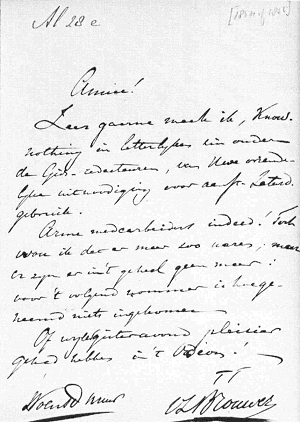 Al 28 e
Amice!
Zeer gaarne maak ik, Know-
nothing in letterlyke zin onder
de Gids-redacteuren, van Uwe vriende-
lyke uitnoodiging voor aanst. Zaturd.
gebruik.
Arme medearbeiders indeed! Toch
wou ik dat er meer zoo waren; maar
er zyn er in 't geheel geen meer:
voor 't volgend nommer is hoege-
naamd niets ingekomen
Of wy gisteravond pleizier
gehad hebben in 't Odéon!
Woensd
TT
Brouwer